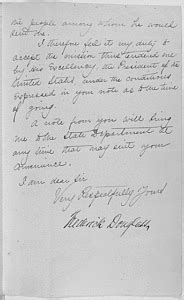 the people among whom he would
send me.
I therefore feel it my duty to
accept the mission thus tendered me
by His Excellency, the President of the
United States under the conditions
expressed in your note as to the time
of going.
A note from you will bring
me to the State Department at
any time that may suit your
convenience.
I am dear Sir
Very Respectfully Yours
Frederick Douglass